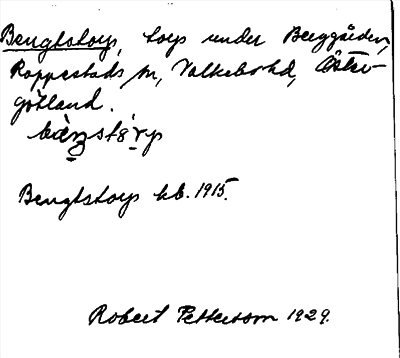 Bengtstorp, torp under Berggården,
Rappestads sn, Valkebo hd, Öster-
götland.
bàŋstǫrp
Bengtstorp kb. 1915.
Robert Pettersson 1929.